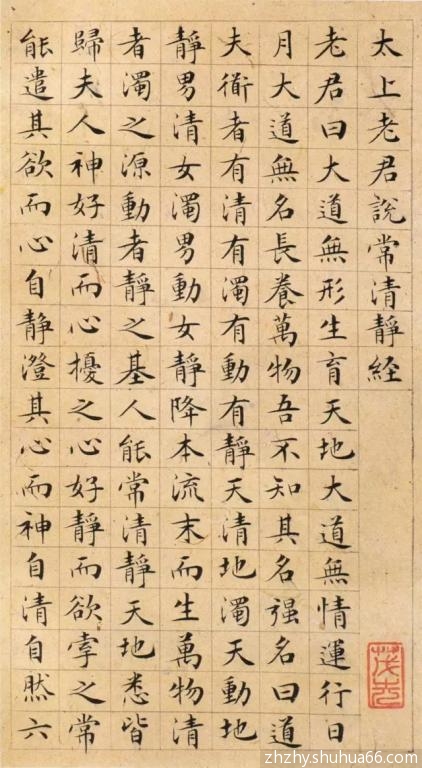 太上老君說常清靜経
老君曰大道無形生育天地大道無情運行日
月大道無名長養萬物吾不知其名强名曰道
夫衜者有清有濁有動有靜天清地濁天動地
靜男清女濁男動女靜降本流末而生萬物清
者濁之源動者靜之基人能常清靜天地悉皆
歸夫人神好清而心擾之心好靜而欲牽之常
能遣其欲而心自静澄其心而神自清自然六
zhzhy.shuhua66.com